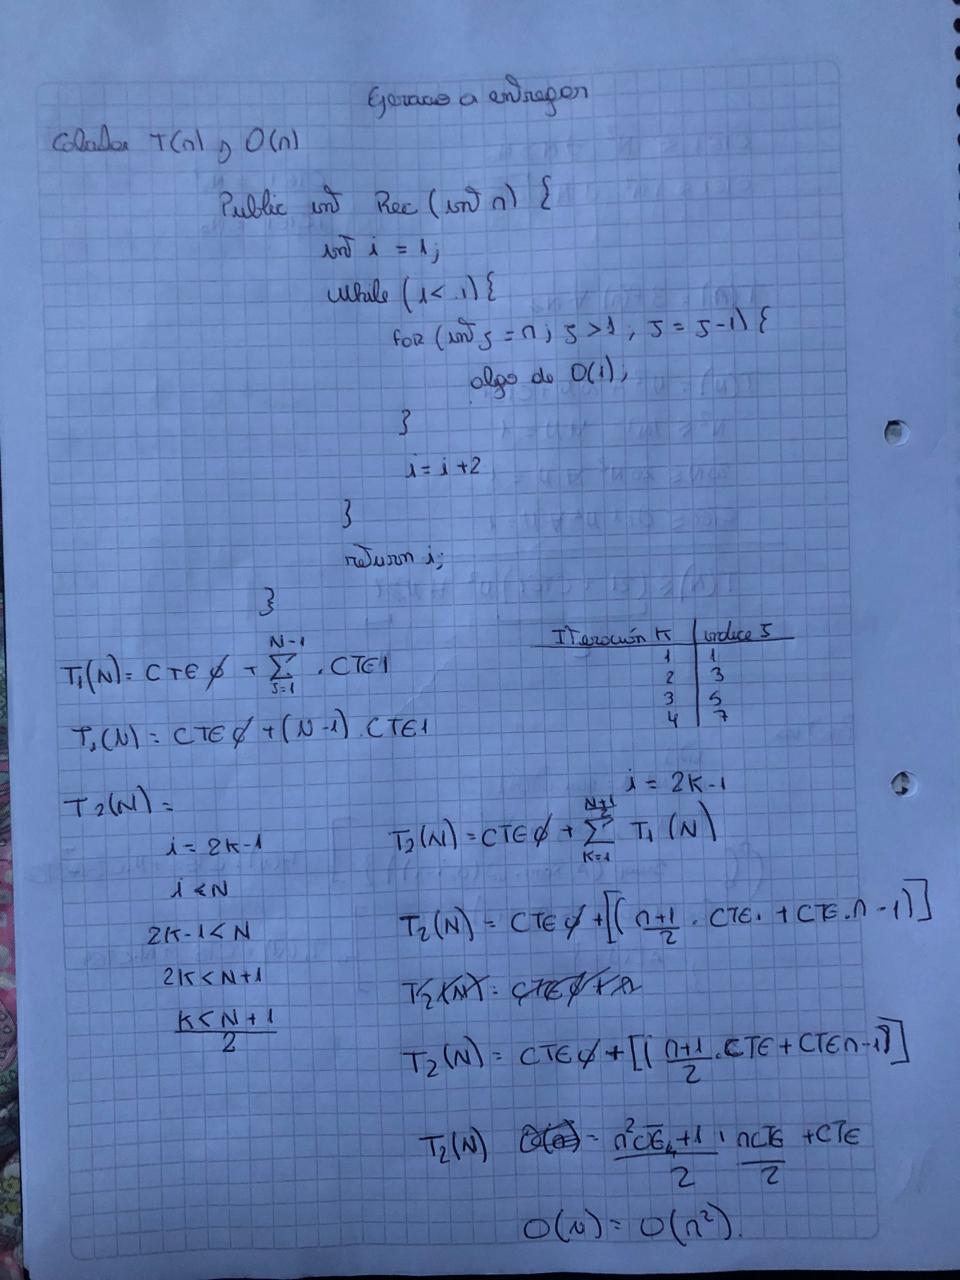 Ejercicio a entregar
Calcular T(n) y O(n)
Public int Rec (int n) {
int i = 1;
while (i < n) {
for (int j = n; j > 1; j = j-1) {
algo de O(1);
}
i = i + 2
}
return i;
}
T₁(N) = CTE Ø + Σ_{J=1}^{N-1} . CTE1
T₁(N) = CTE Ø + (N-1) . CTE1
Iteración K | indice J
1 | 1
2 | 3
3 | 5
4 | 7
i = 2K-1
T₂(N) =
i = 2K-1
i < N
2K-1 < N
2K < N+1
K < N+1
2
T₂(N) = CTE Ø + Σ_{K=1}^{(N+1)/2} T₁(N)
T₂(N) = CTE Ø + [( n+1/2 . CTE. + CTE.n-1)]
T₂(N) = CTE Ø + [( n+1/2 . CTE + CTE n-1)]
T₂(N) = n²CTE+1/2 . nCTE/2 + CTE
O(N) = O(n²).